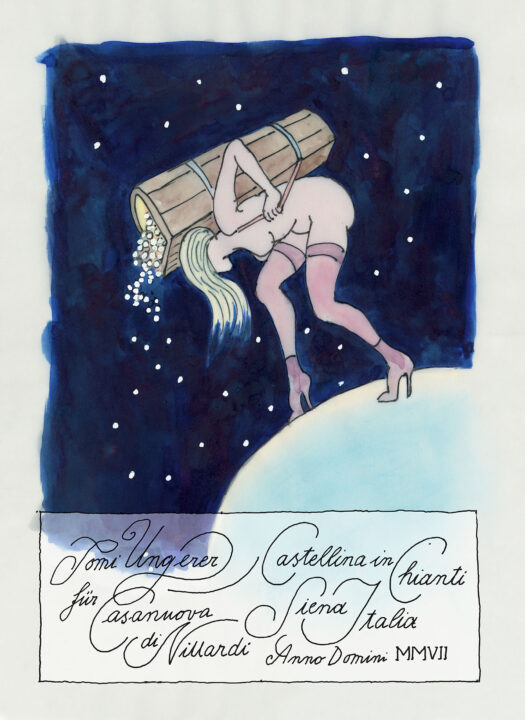 Tomi Ungerer
für Casanuova
di Nittardi
Castellina in Chianti
Siena Italia
Anno Domini MMVII